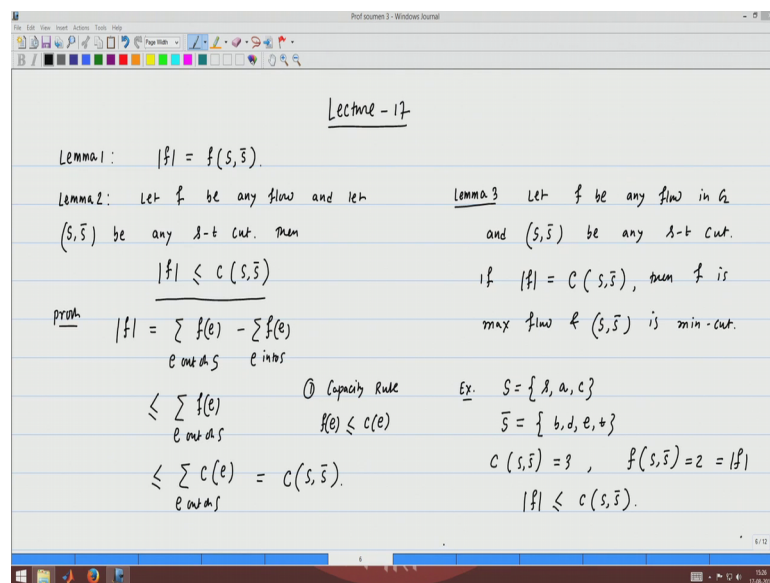 Prof soumen 3 - Windows Journal
File Edit View Insert Actions Tools Help
Page Width
Lecture - 17
Lemma 1 : |f| = f(S, S̄).
Lemma 2 : Let f be any flow and let
(S, S̄) be any s-t cut. Then
|f| ≤ C(S, S̄)
proof |f| = ∑ f(e) - ∑ f(e)
e out of S e into S
≤ ∑ f(e)
e out of S
① Capacity Rule
f(e) ≤ c(e)
≤ ∑ c(e) = C(S, S̄).
e out of S
Lemma 3 Let f be any flow in G
and (S, S̄) be any s-t cut.
if |f| = C(S, S̄), then f is
max flow & (S, S̄) is min-cut.
Ex. S = { s, a, c }
S̄ = { b, d, e, t }
C(S, S̄) = 3 , f(S, S̄) = 2 = |f|
|f| ≤ C(S, S̄).
6/12
6
15:26